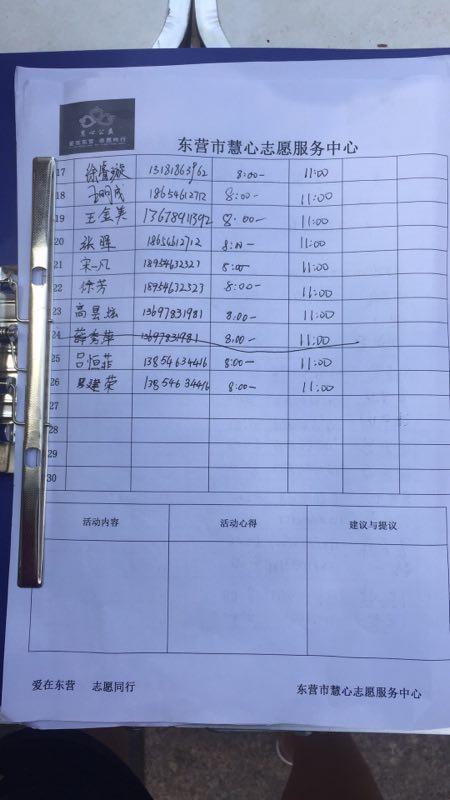 慧心公益
爱在东营 志愿同行
东营市慧心志愿服务中心
17 徐 璇 13181863962 8:00- 11:00
18 王明成 18654612712 8:00- 11:00
19 王金美 13678911392 8:00- 11:00
20 张晖 18654612712 8:00- 11:00
21 宋一凡 18954632327 8:00- 11:00
22 徐芳 18954632327 8:00- 11:00
23 高昙坛 13697831981 8:00- 11:00
24 薛秀萍 13697831981 8:00- 11:00
25 吕恒菲 13854634416 8:00- 11:00
26 建荣 13854634416 8:00- 11:00
27
28
29
30
活动内容 活动心得 建议与提议
爱在东营 志愿同行 东营市慧心志愿服务中心